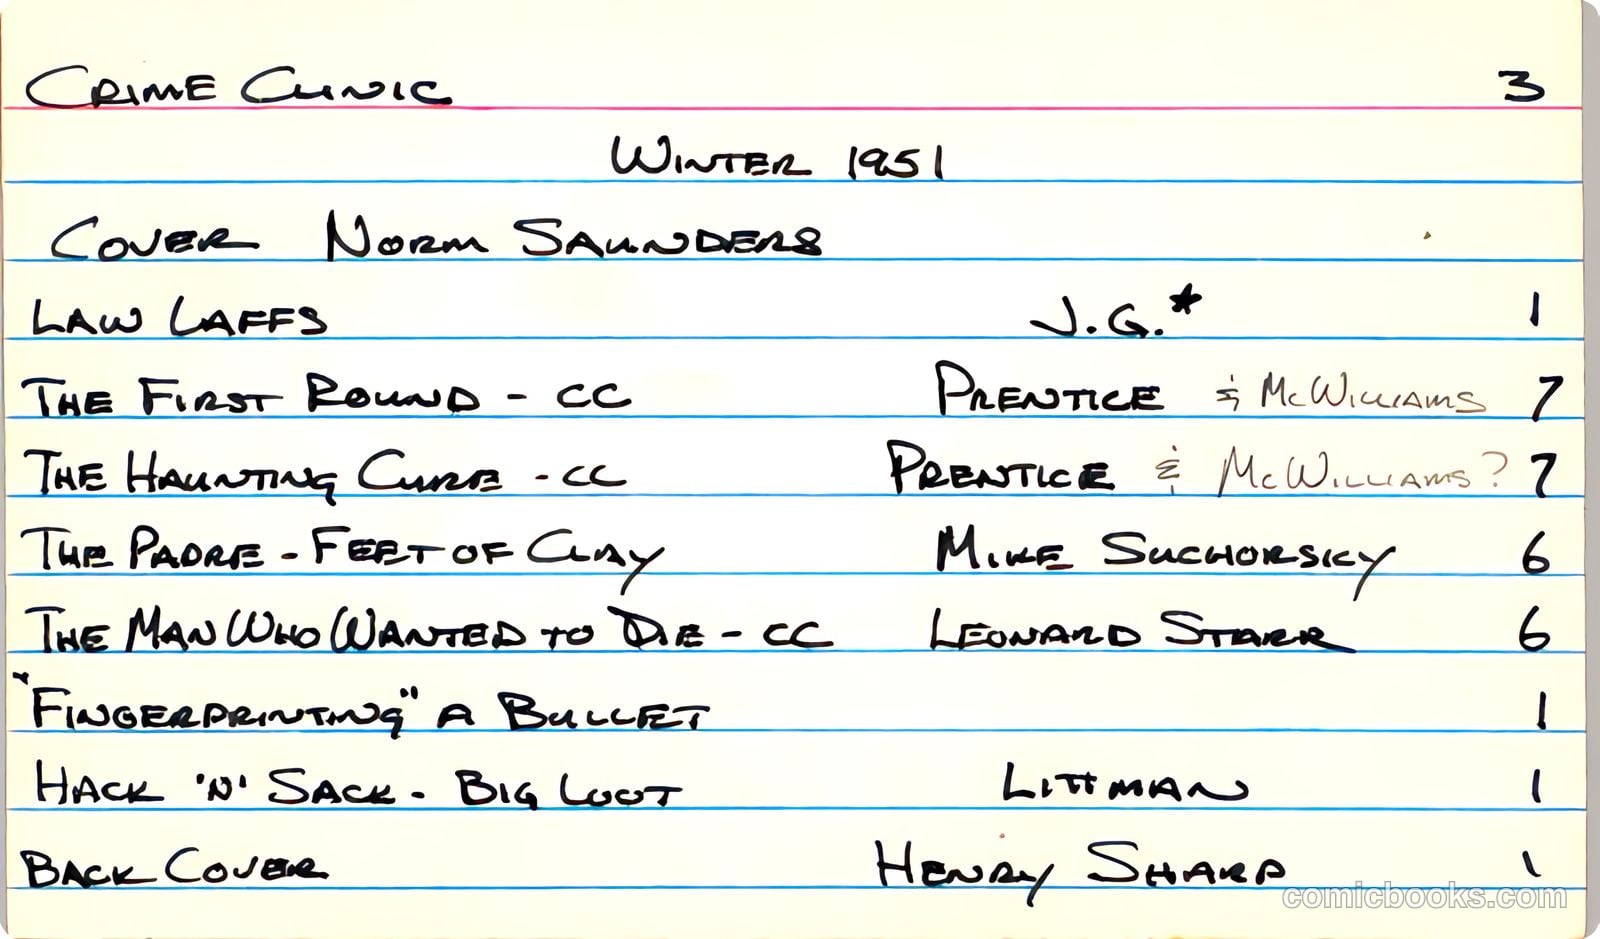 CRIME CLINIC 3
WINTER 1951
COVER NORM SAUNDERS
LAW LAFFS J.G.* 1
THE FIRST ROUND - CC PRENTICE & McWILLIAMS 7
THE HAUNTING CURE - CC PRENTICE & McWILLIAMS? 7
THE PADRE - FEET OF CLAY MIKE SUCHORSKY 6
THE MAN WHO WANTED TO DIE - CC LEONARD STARR 6
"FINGERPRINTING" A BULLET 1
HACK 'N' SACK - BIG LOOT LITTMAN 1
BACK COVER HENRY SHARP 1
comicbooks.com